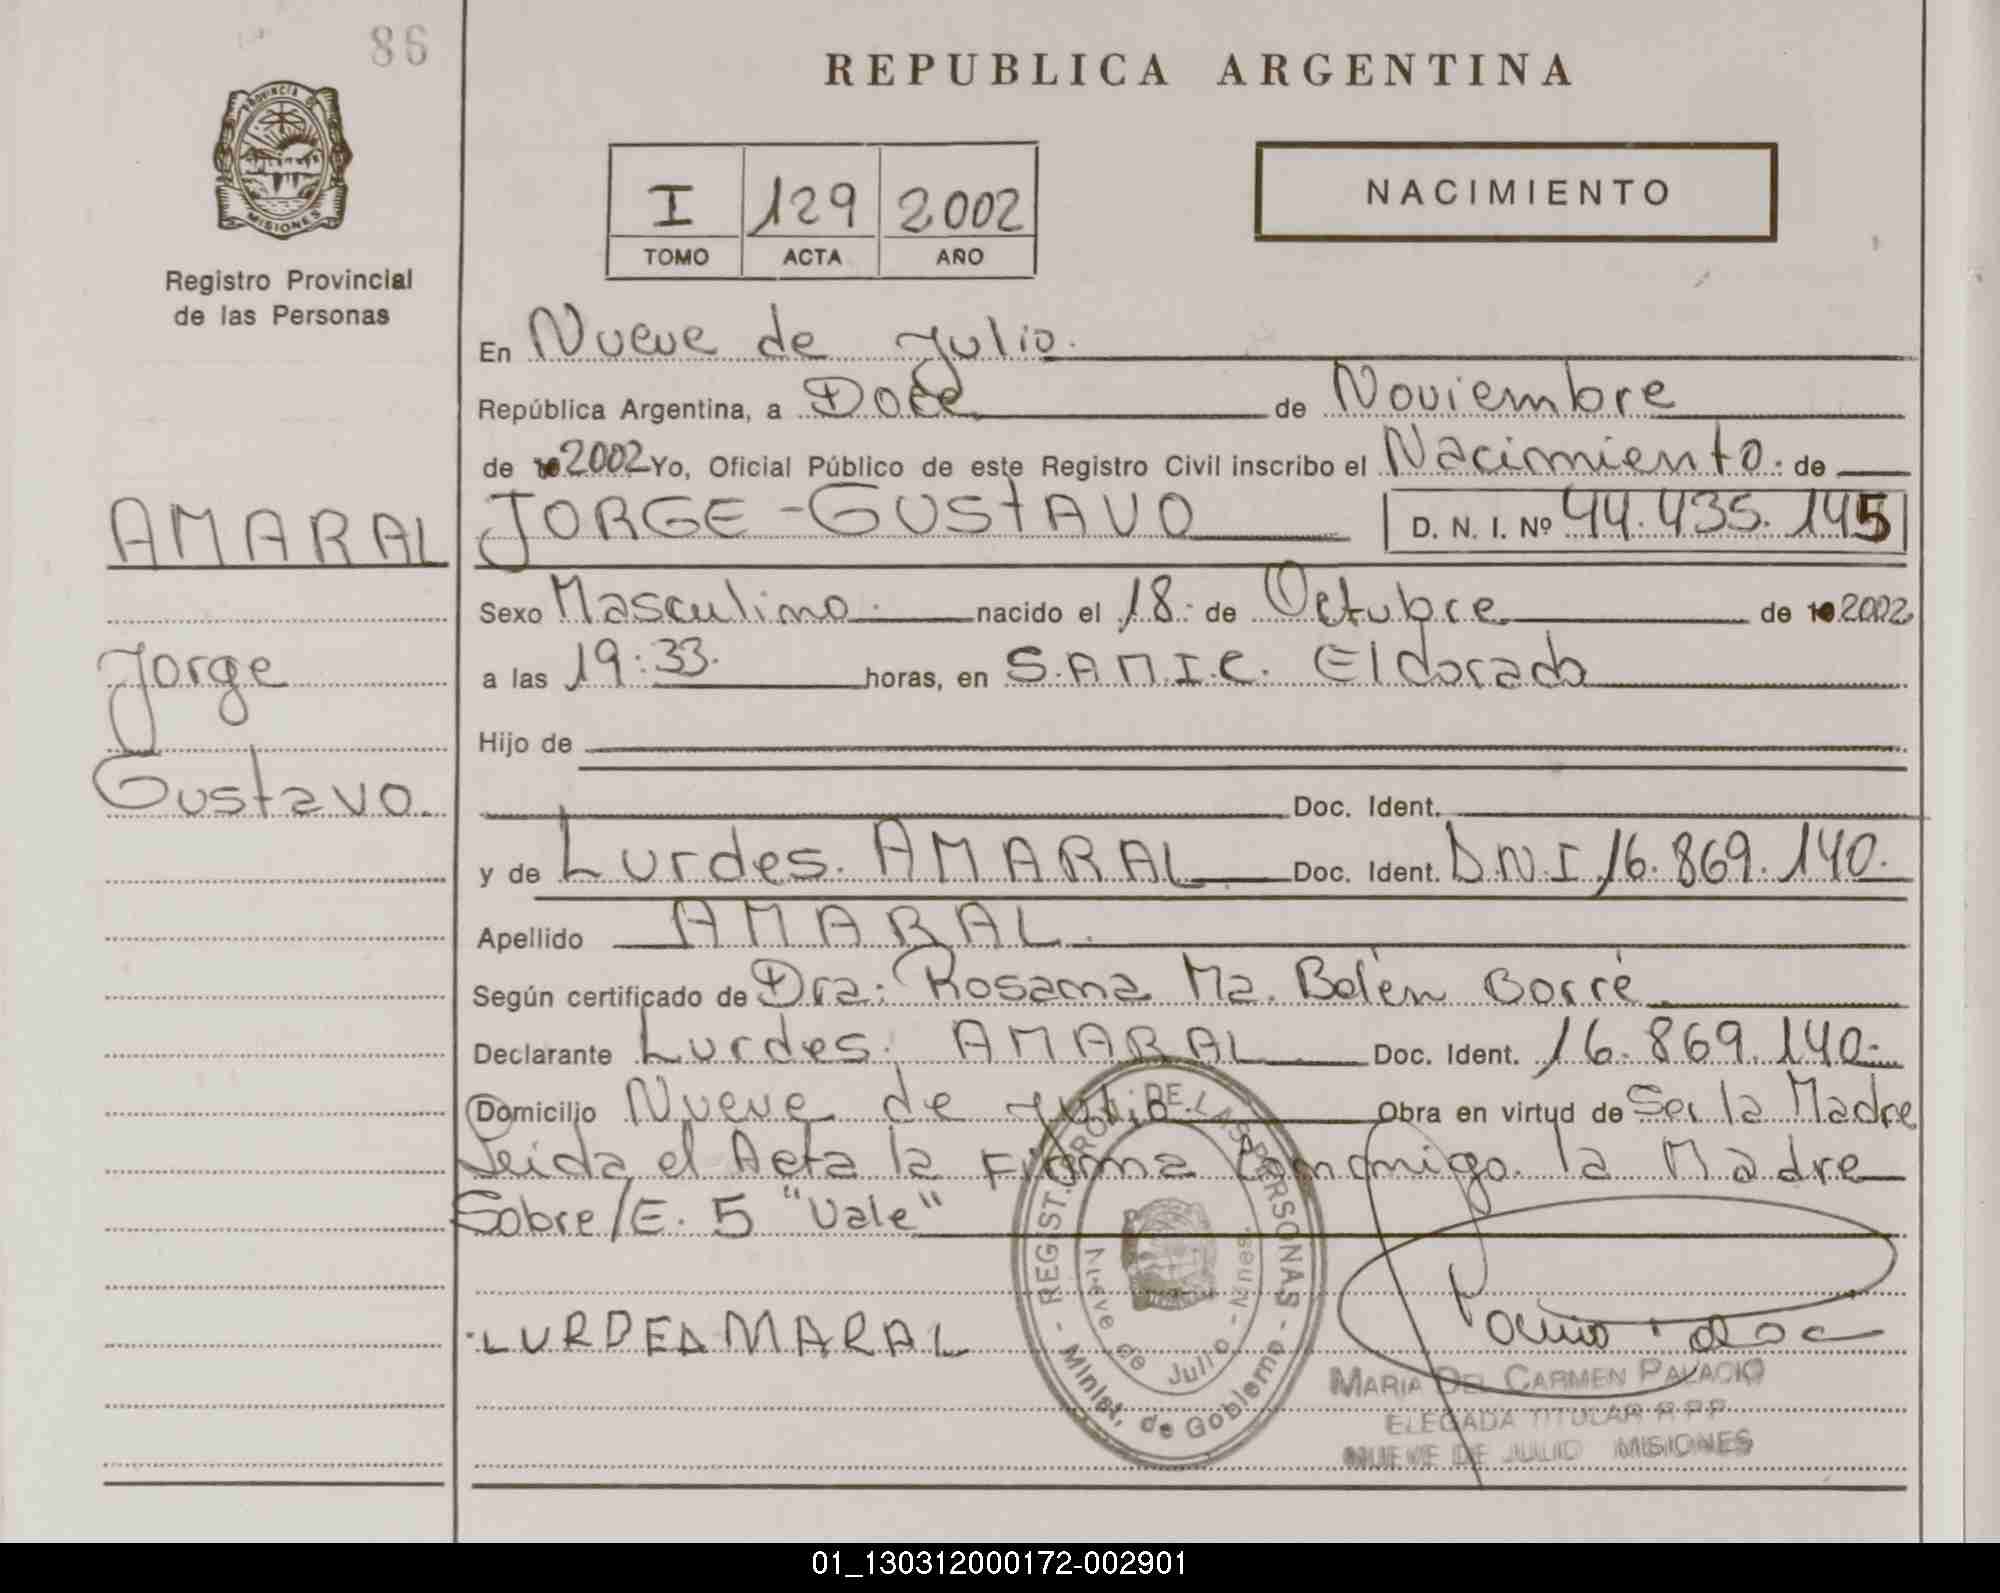 86
PROVINCIA DE
MISIONES
Registro Provincial
de las Personas
AMARAL
Jorge
Gustavo.
REPUBLICA ARGENTINA
I 129 2002
TOMO ACTA AÑO
NACIMIENTO
En Nueve de Julio.
República Argentina, a Doce de Noviembre
de 2002 Yo, Oficial Público de este Registro Civil inscribo el Nacimiento. de
JORGE-GUSTAVO D. N. I. Nº 44.435.145
Sexo Masculino. nacido el 18. de Octubre de 2002
a las 19:33. horas, en S.A.M.I.C. Eldorado
Hijo de
Doc. Ident.
y de Lurdes. AMARAL Doc. Ident. D.N.I 16.869.140.
Apellido AMARAL.
Según certificado de Dra: Rosana Ma. Belén Borré
Declarante Lurdes. AMARAL Doc. Ident. 16.869.140.
Domicilio Nueve de Julio. Obra en virtud de Ser la Madre
Leida el Acta la Firma Conmigo. la Madre
Sobre/E. 5 "Vale"
LURDEAMARAL
REGIST. PROV. DE LAS PERSONAS
Nueve de Julio - Mnes.
- Minist. de Gobierno -
MARIA DEL CARMEN PALACIO
ELEGADA TITULAR R.P.P.
NUEVE DE JULIO MISIONES
01_130312000172-002901